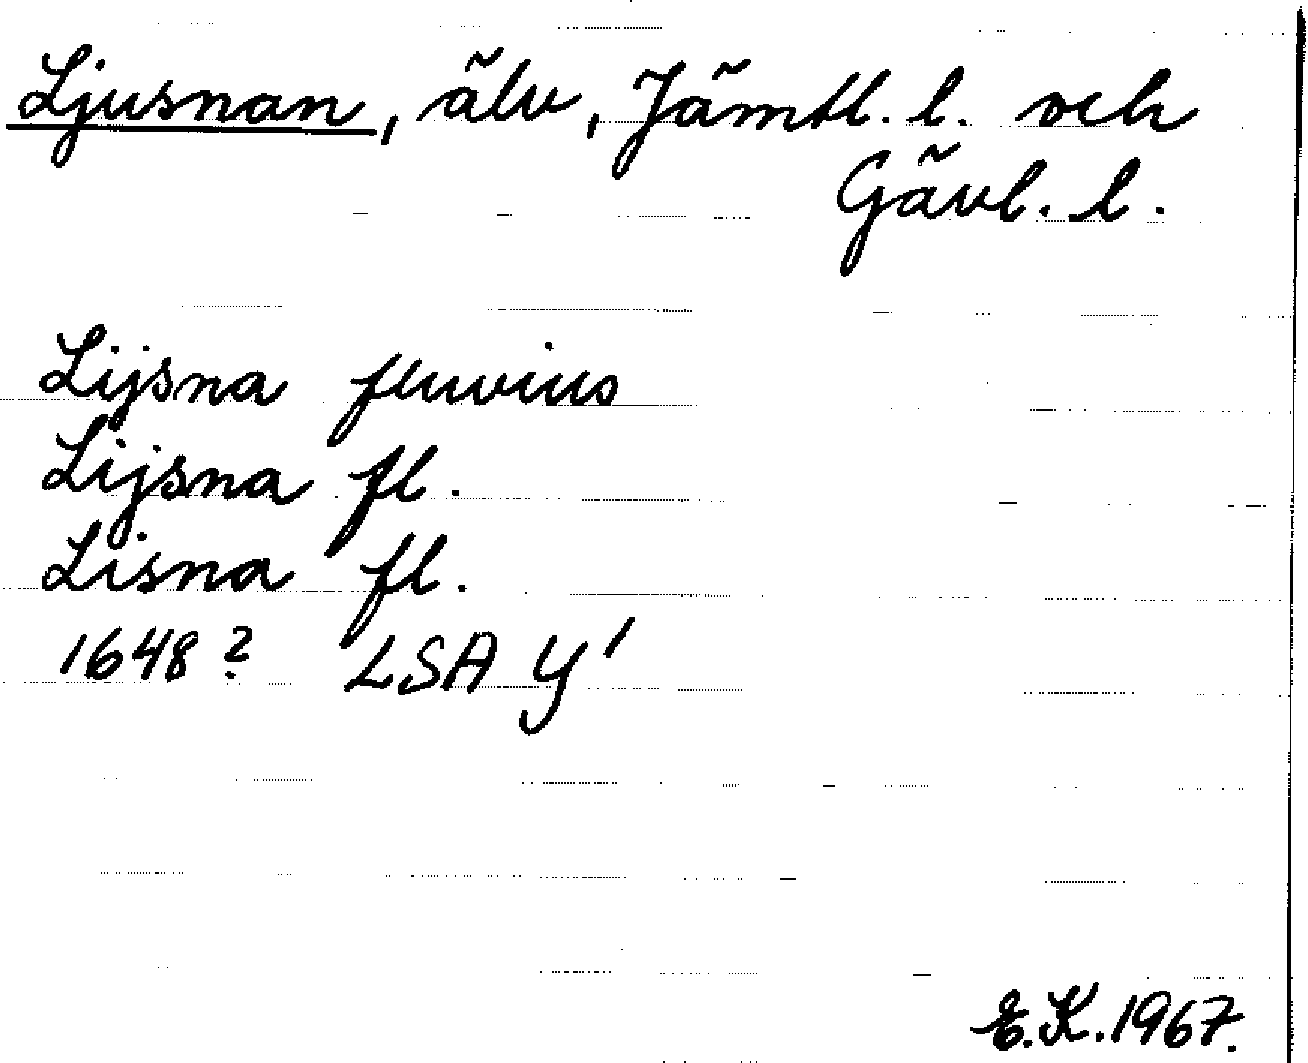 Ljusnan, älv, Jämtl. l. och
Gävl. l.
Lijsna fluvius
Lijsna fl.
Lisna fl.
1648? LSA Y'
E.K. 1967.